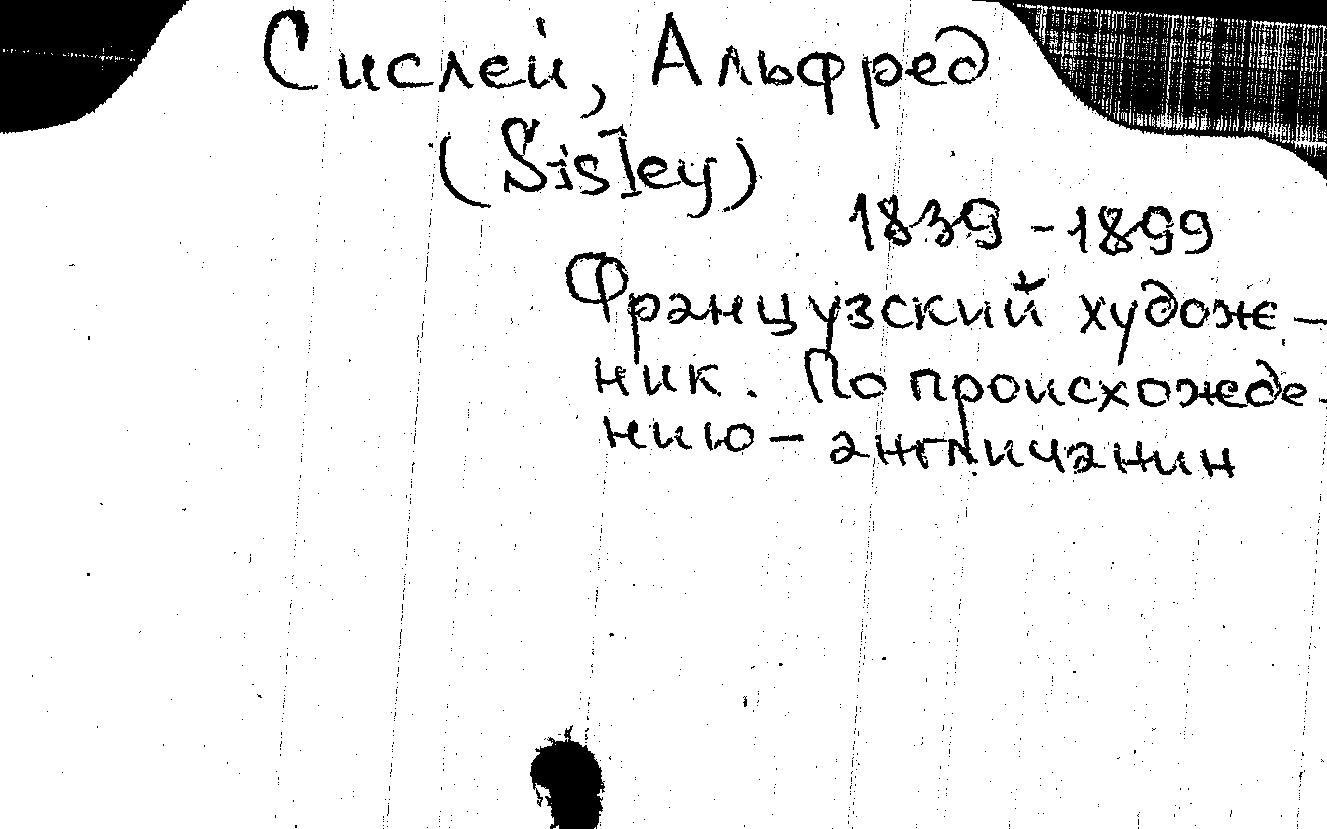 Сислей, Альфред
(Sisley)
1839 - 1899
Французский худож -
ник. По происхожде -
нию - англичанин